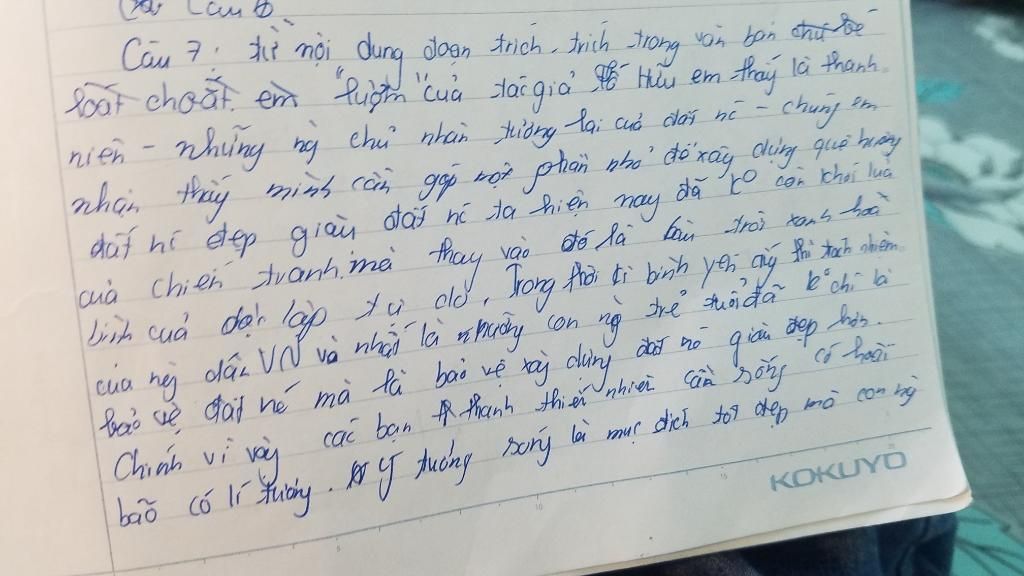 Câu 6
Câu 7: từ nội dung đoạn trích, trích trong văn bản chú bé
loắt choắt. em "lượm" của tác giả Tố Hữu em thấy là thanh
niên - những ng chủ nhân tương lai của đất nc - chúng em
nhận thấy mình cần góp một phần nhỏ để xây dựng quê hương
đất nc đẹp giàu đất nc ta hiện nay đã ko còn khói lửa
của chiến tranh. mà thay vào đó là bầu trời xanh hoà
bình của độc lập tự do. Trong thời kì bình yên ấy thì trách nhiệm
của ng dân VN và nhất là những con ng trẻ tuổi đã ko chỉ là
bảo vệ đất nc mà là bảo vệ xây dựng đất nc giàu đẹp hơn.
Chính vì vậy các bạn thanh thiếu nhiên cần sống có hoài
bão có lí tưởng. Lý tưởng sống là mục đích tốt đẹp mà con ng
KOKUYO